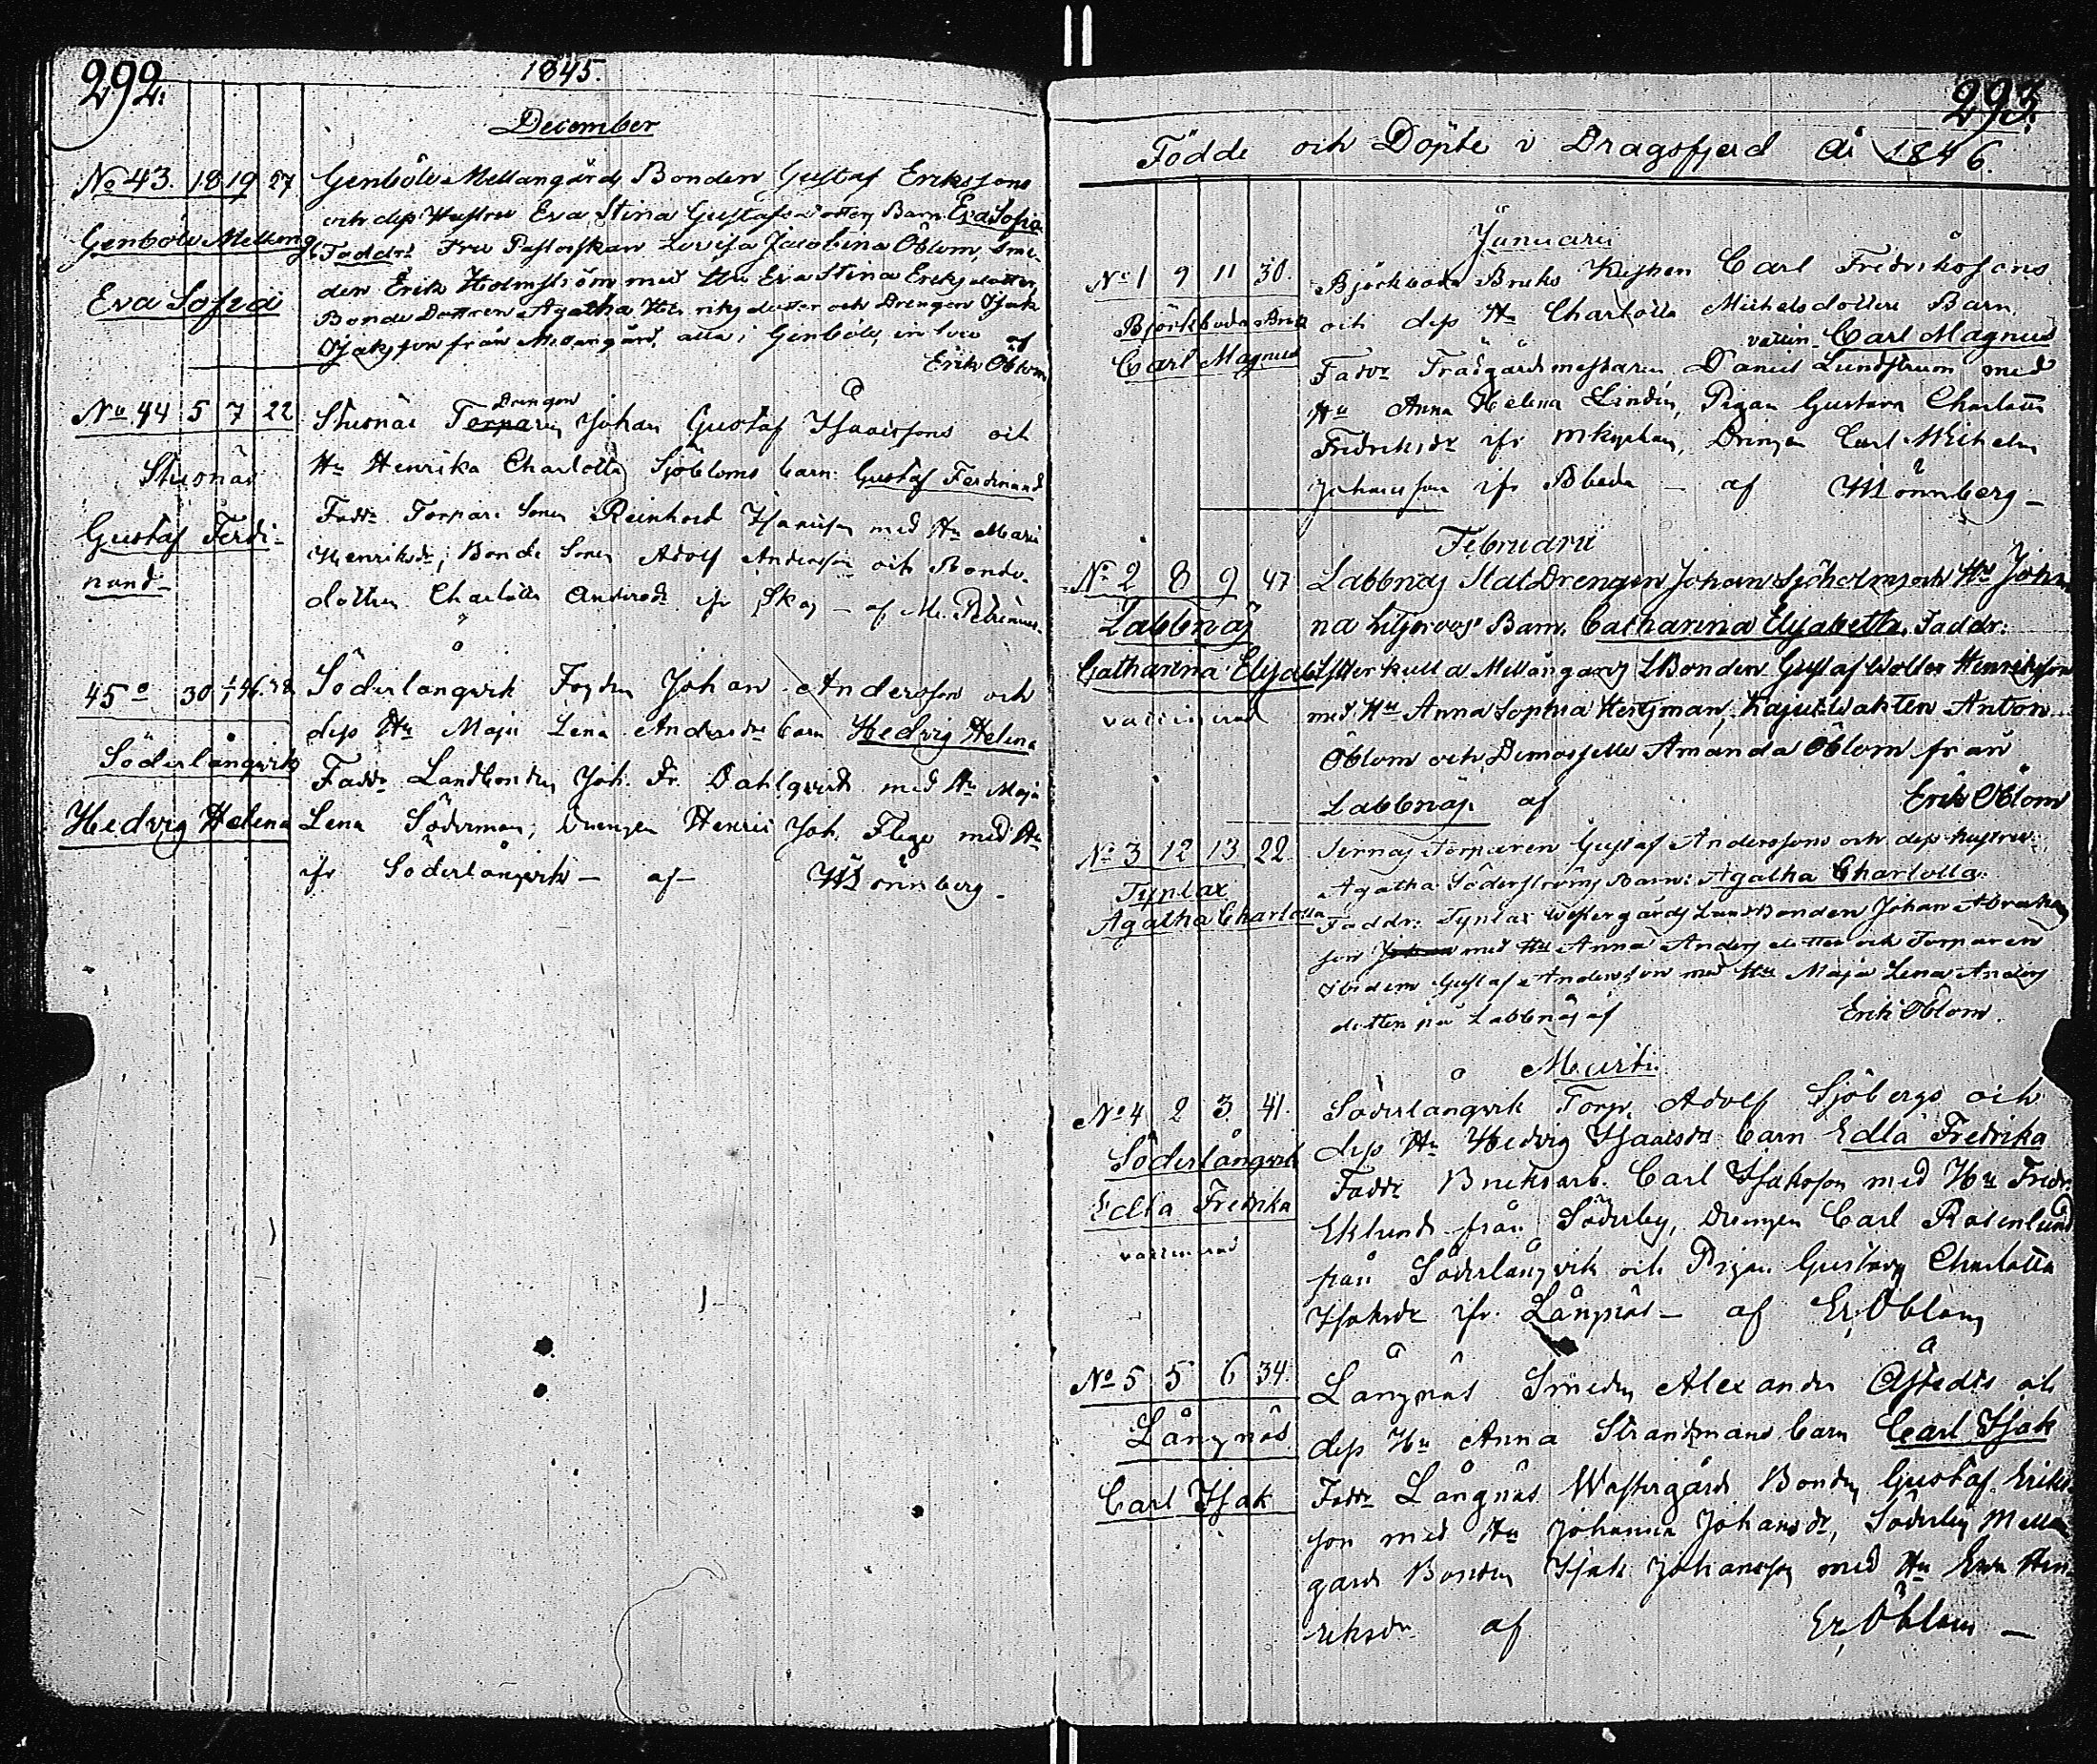 292.
1845.
December
No 43. 18 19 27
Genböle Mellang
Eva Sofia
Genböle Mellangårds Bonden Gustaf Erikssons
och dess Hustru Eva Stina Gustafsdotters Barn Eva Sofia
Faddr: Fru Pastorskan Lovisa Jacobina Öblom, Sme-
den Erik Holmström med Hu Eva Stina Eriksdotter,
Bonde Dottren Agatha Henriksdotter och Drengen Isak
Isaksson från Mellangård, alla i Genböle, in loco af
Erik Öblom
No 44 5 7 22
Stusnäs
Gustaf Ferdi-
nand
Drengen
Stusnäs Torparen Johan Gustaf Isacssons och
Hu Henrika Charlotta Sjöbloms barn Gustaf Ferdinand
Faddr Torpare Sonen Reinhold Isacsson med Hu Maria
Henriksdr, Bonde Sonen Adolf Andersson och Bonde-
dottren Charlotta Andersdr ifr Skog - af M.
45 30 1/1 46. 28
Söderlångvik
Hedvig Helena
Söderlångvik Fogden Johan Andersson och
dess Hu Maja Lena Andersdr barn Hedvig Helena
Faddr Landbonden Joh. Fr. Dahlqvist med Hu Maja
Lena Söderman, Drengen Henric Joh. Flege med Hu
ifr Söderlångvik - af - Mönnberg -
293.
Födde och Döpte i Dragsfjerd år 1846.
Januarii
No 1 9 11 30.
Björkboda Bruk
Carl Magnus
Björkboda Bruks Kusken Carl Fredrikssons
och dess Hu Charlotta Michelsdotters Barn
vaccin. Carl Magnus
Faddr Trädgårdsmästaren Daniel Lundström med
Hu Anna Helena Lindén, Pigan Gustava Charlotta
Fredriksdr ifr Mkyrkan, Drengen Carl Wilhelm
Johansson ifr Bboda - af Mönnberg -
Februarii
No 2 8 9 47
Labbnäs
Catharina Elisabeth
vaccinerad
Labbnäs StatDrengen Johan Sjöholms och Hu Johan-
na Liljeroos' Barn. Catharina Elisabeth. Faddr:
Mellangårds LBonden Gustaf Wolter Henriksson
med Hu Anna Sophia Hertman, KajutWakten Anton
Öblom och Demoiselle Amanda Öblom från
Labbnäs af Erik Öblom
No 3 12 13 22
Tynlax
Agatha Charlotta
Sirnäs Torparen Gustaf Anderssons och dess hustru
Agatha Söderströms Barn: Agatha Charlotta.
Faddr: Tynlax Westergårds LandBonden Johan Abraham
son Johan med Hu Anna Andersdotter och Torparen
ibidem Gustaf Andersson med Hu Maja Lena Anders
dotter på Labbnäs af Erik Öblom.
Martii.
No 4 2 3 41.
Söderlångvik
Edla Fredrika
vaccinerad
Söderlångvik Torp. Adolf Sjöbergs och
dess Hu Hedvig Isaacsdr barn Edla Fredrika
Faddr Bruksarb. Carl Isaksson med Hu Fredr.
Eklund från Söderby, Drengen Carl Rosenlund
från Söderlångvik och Pigan Gustava Charlotta
Isaksdr ifr. Långnäs - af Er. Öblom
No 5 5 6 34.
Långnäs
Carl Isak
Långnäs Smeden Alexander Åstedts och
dess Hu Anna Strandmans barn Carl Isak
Faddr Långnäs Westergårds Bonden Gustaf Eriks-
son med Hu Johanna Johansdr, Söderby Mellan
gårds Bonden Isak Johansson med Hu Eva Hen-
riksdr af Er. Öblom -